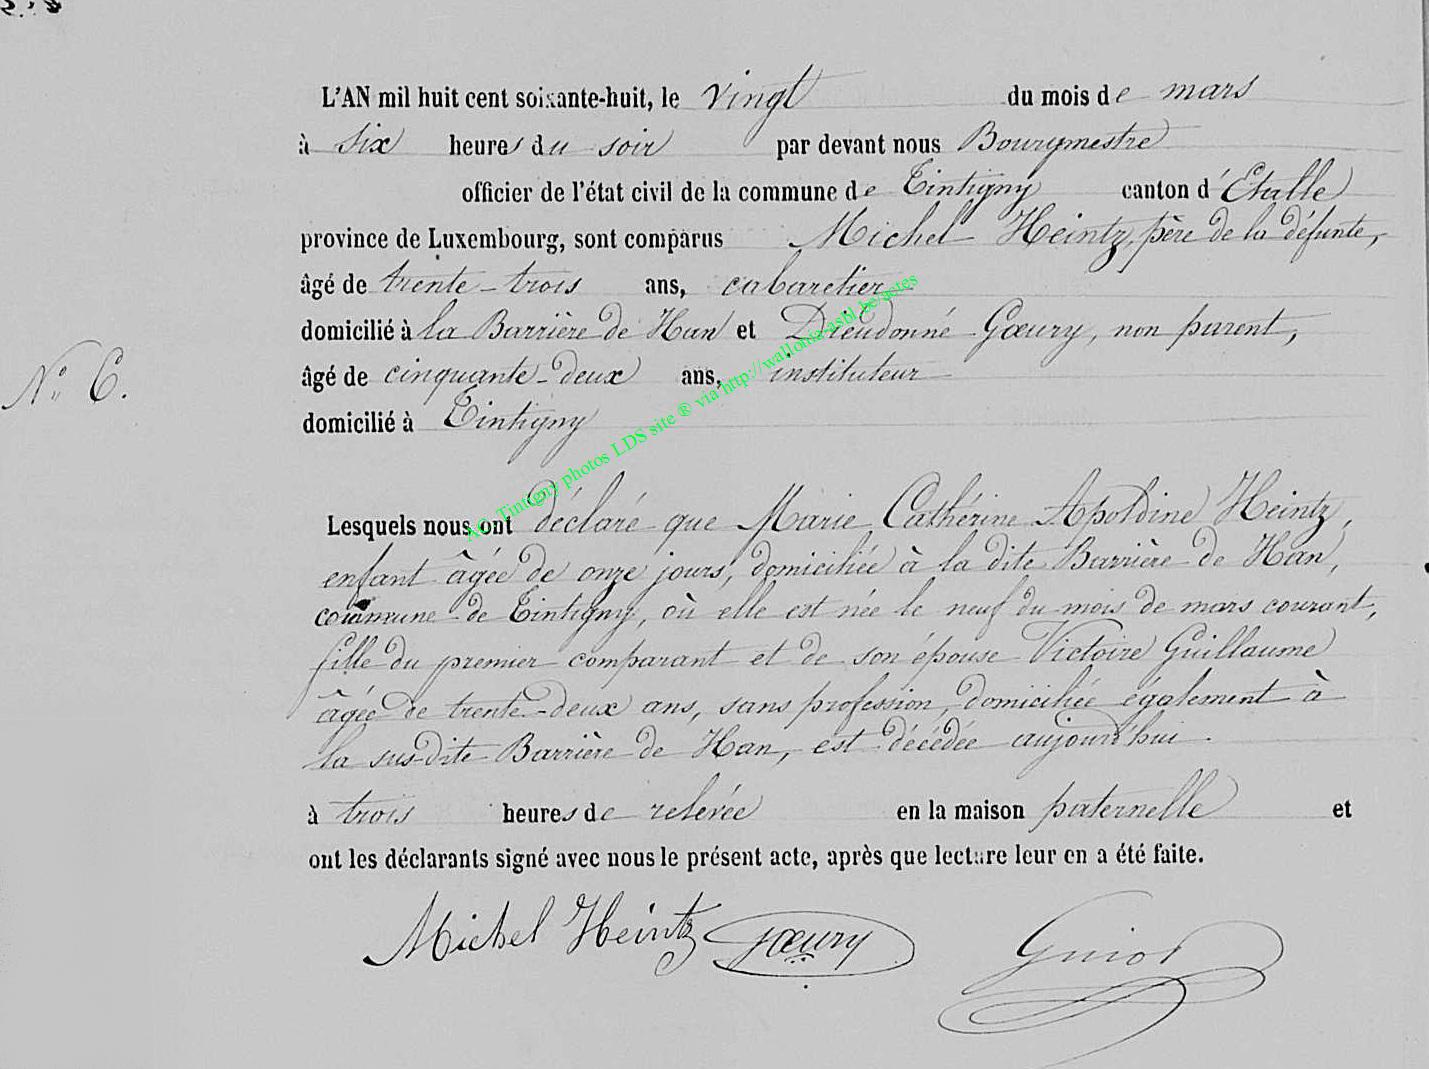 L'AN mil huit cent soixante-huit, le vingt du mois de mars
à six heures du soir par devant nous Bourgmestre
officier de l'état civil de la commune de Tintigny canton d'Etalle
province de Luxembourg, sont comparus Michel Heintz, père de la défunte,
âgé de trente-trois ans, cabaretier
domicilié à la Barrière de Han et Dieudonné Gœury, non parent,
N° 6.
âgé de cinquante-deux ans, instituteur
domicilié à Tintigny
AC Tintigny photos LDS site ® via http://wallonia-asbl.be/actes
Lesquels nous ont déclaré que Marie Catherine Apoldine Heintz,
enfant âgée de onze jours, domiciliée à la dite Barrière de Han,
commune de Tintigny, où elle est née le neuf du mois de mars courant,
fille du premier comparant et de son épouse Victoire Guillaume
âgée de trente-deux ans, sans profession, domiciliée également à
la sus-dite Barrière de Han, est décédée aujourd'hui
à trois heures de relevée en la maison paternelle et
ont les déclarants signé avec nous le présent acte, après que lecture leur en a été faite.
Michel Heintz Gœury Guiot